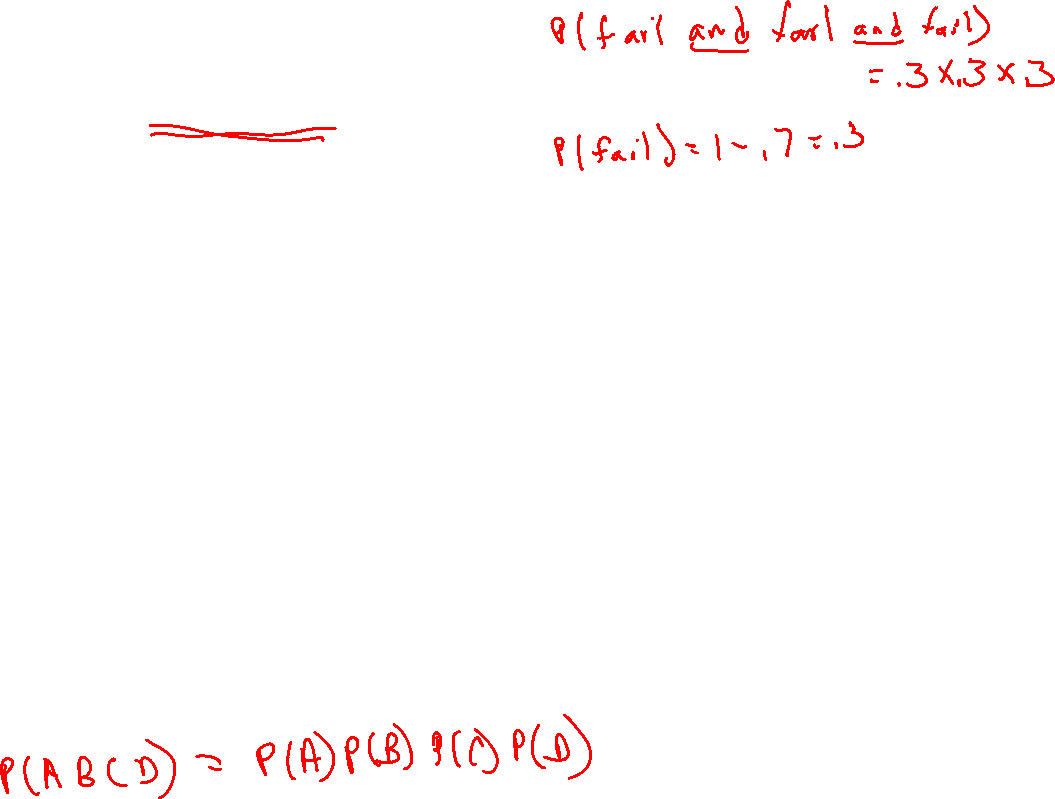 P(fail and fail and fail)
= .3 × .3 × .3
P(fail) = 1 - .7 = .3
P(A B C D) = P(A) P(B) P(C) P(D)